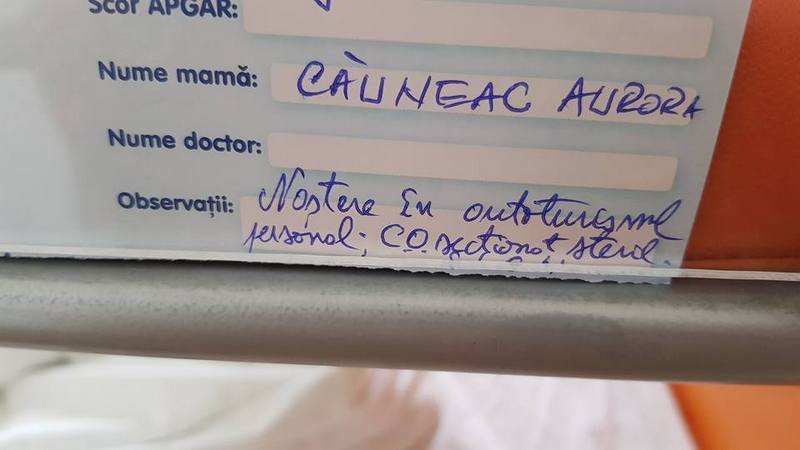 Scor APGAR:
Nume mamă: CĂUNEAC AURORA
Nume doctor:
Observații: Naștere în autoturismul
personal; C.O. secționat steril.